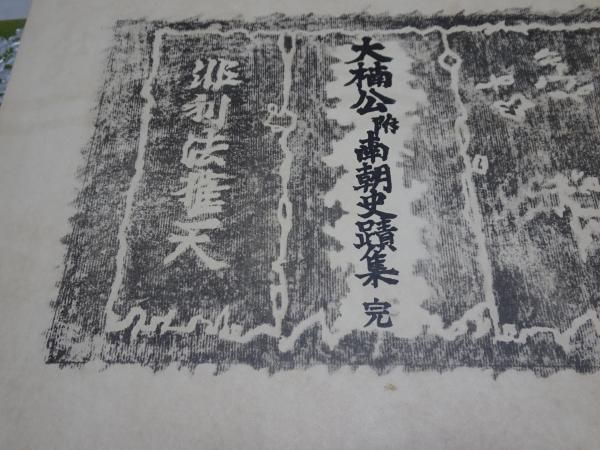 大楠公附南朝史蹟集 完
非利法権天